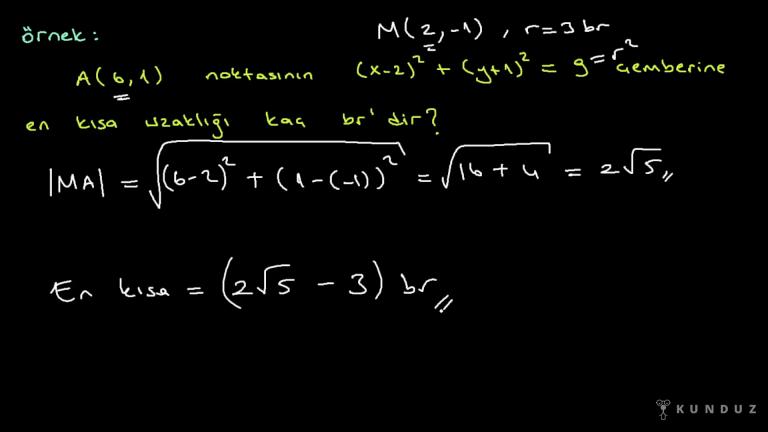 örnek: M(2,-1) , r=3 br
A(6,1) noktasının (x-2)² + (y+1)² = 9 = r² çemberine
en kısa uzaklığı kaç br'dir?
|MA| = √((6-2)² + (1-(-1))²) = √(16+4) = 2√5
En kısa = (2√5 - 3) br
KUNDUZ